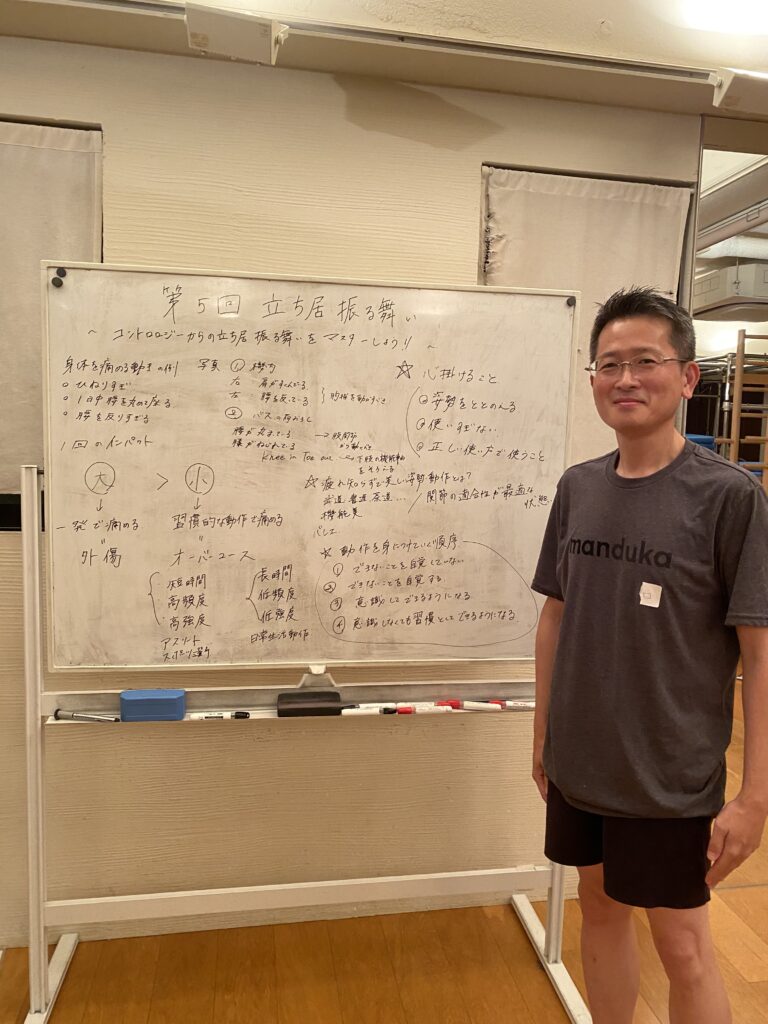 第5回 立ち居振る舞い
~ コントロロジーからの立ち居振る舞いをマスターしよう!! ~
身体を痛める動きの例
○ ひねりすぎ
○ 1日中 腰を丸めて座る
○ 腰を反りすぎる
1回のインパクト
大 > 小
↓ ↓
一発で痛める 習慣的な動作で痛める
外傷 オーバーユース
短時間
高頻度
高強度
アスリート
長時間
低頻度
低強度
日常生活動作
写真 ①
右 肩がすくんでる
左 腰を反ってる
②
腰が丸まってる
腰がねじれてる
→ 股関節
から動いて
Knee in Toe out
☆ 心掛けること
姿勢をととのえる
使いすぎない
正しい使い方で使うこと
☆ 疲れ知らずで美しい姿勢動作とは?
武道 書道 茶道...
機能美
関節の適合性が最適な
状態
バレエ
☆ 動作を身につけていく順序
① できないことを自覚していない
② できないことを自覚する
③ 意識してできるようになる
④ 意識しなくても習慣としてできるようになる
manduka